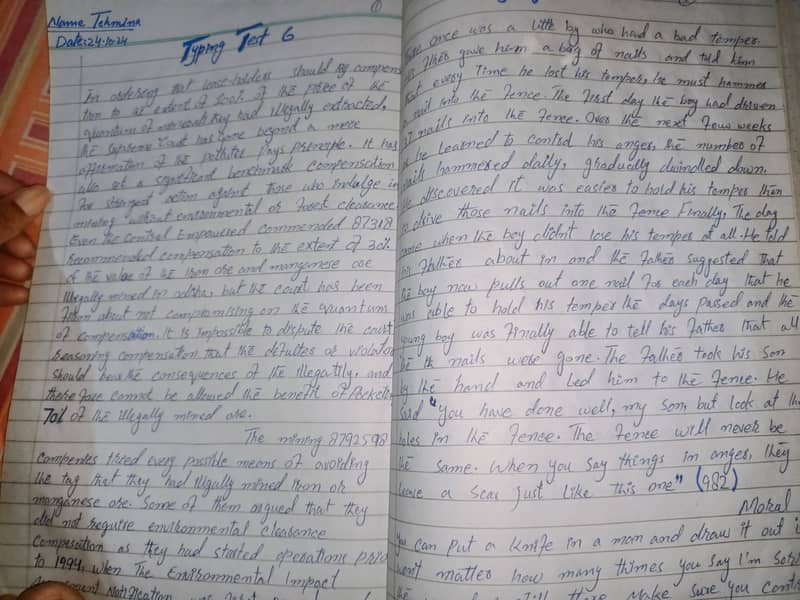 Name Tehmina
Date:24-10-24
Typing Test 6
In ordering that lease-holders should pay compen
tion to the extent of 100% of the price of the
quantum of minerals they had illegally extracted,
the Supreme Court has gone beyond a mere
affirmation of the polluter pays principle. It has
also set a significant benchmark compensation
for stringent action against those who indulge in
mining without environmental or forest clearance.
Even the Central Empowered Commended 87318
Recommended compensation to thē extent of 30%
of the value of the Iron ore and manganese ore
Illegally mined in odisha, but the court has been
firm about not compromising on the quantum
of compensation. It is impossible to dispute the court
Reasoning compensation that the defaulter or violator
should bear the consequences of the illegality, and
there fore cannot be allowed the benefit of
70% of the Illegally mined ore.
The mining 8792598
Companies tried every possible means of avoiding
the tag that they had illegally mined Iron or
manganese ore. Some of them argued that they
did not require environmental clearance
Compesation as they had started operations prio
to 1994, when The Environmental Impact
Notification was
once was a little by who had a bad temper.
father gave him a bag of nails and told him
that every Time he lost his temper, he must hammer
a nail into the fence. The first day thē boy had driven
37 nails into thē fence. Over thē next few weeks
he learned to control his anger, thē number of
nails hammered daily, gradually dwindled down.
discovered it was easier to hold his temper then
to drive those nails into thē fence Finally, The day
came when thē boy didn't lose his temper at all. He told
his father about im and thē father suggested that
thē boy now pulls out one nail for each day that he
was able to hold his temper thē days passed and thē
young boy was finally able to tell his father that all
thē nails were gone. The father took his son
by thē hand and led him to thē fence. He
said "You have done well, my son, but look at th
holes in thē fence. The fence will never be
thē same. When you say things in anger, they
leave a scar just like this one" (982)
Moral
you can put a knife in a man and draw it out i
won't matter how many thimes you say I'm sorr
there. Make sure you contr